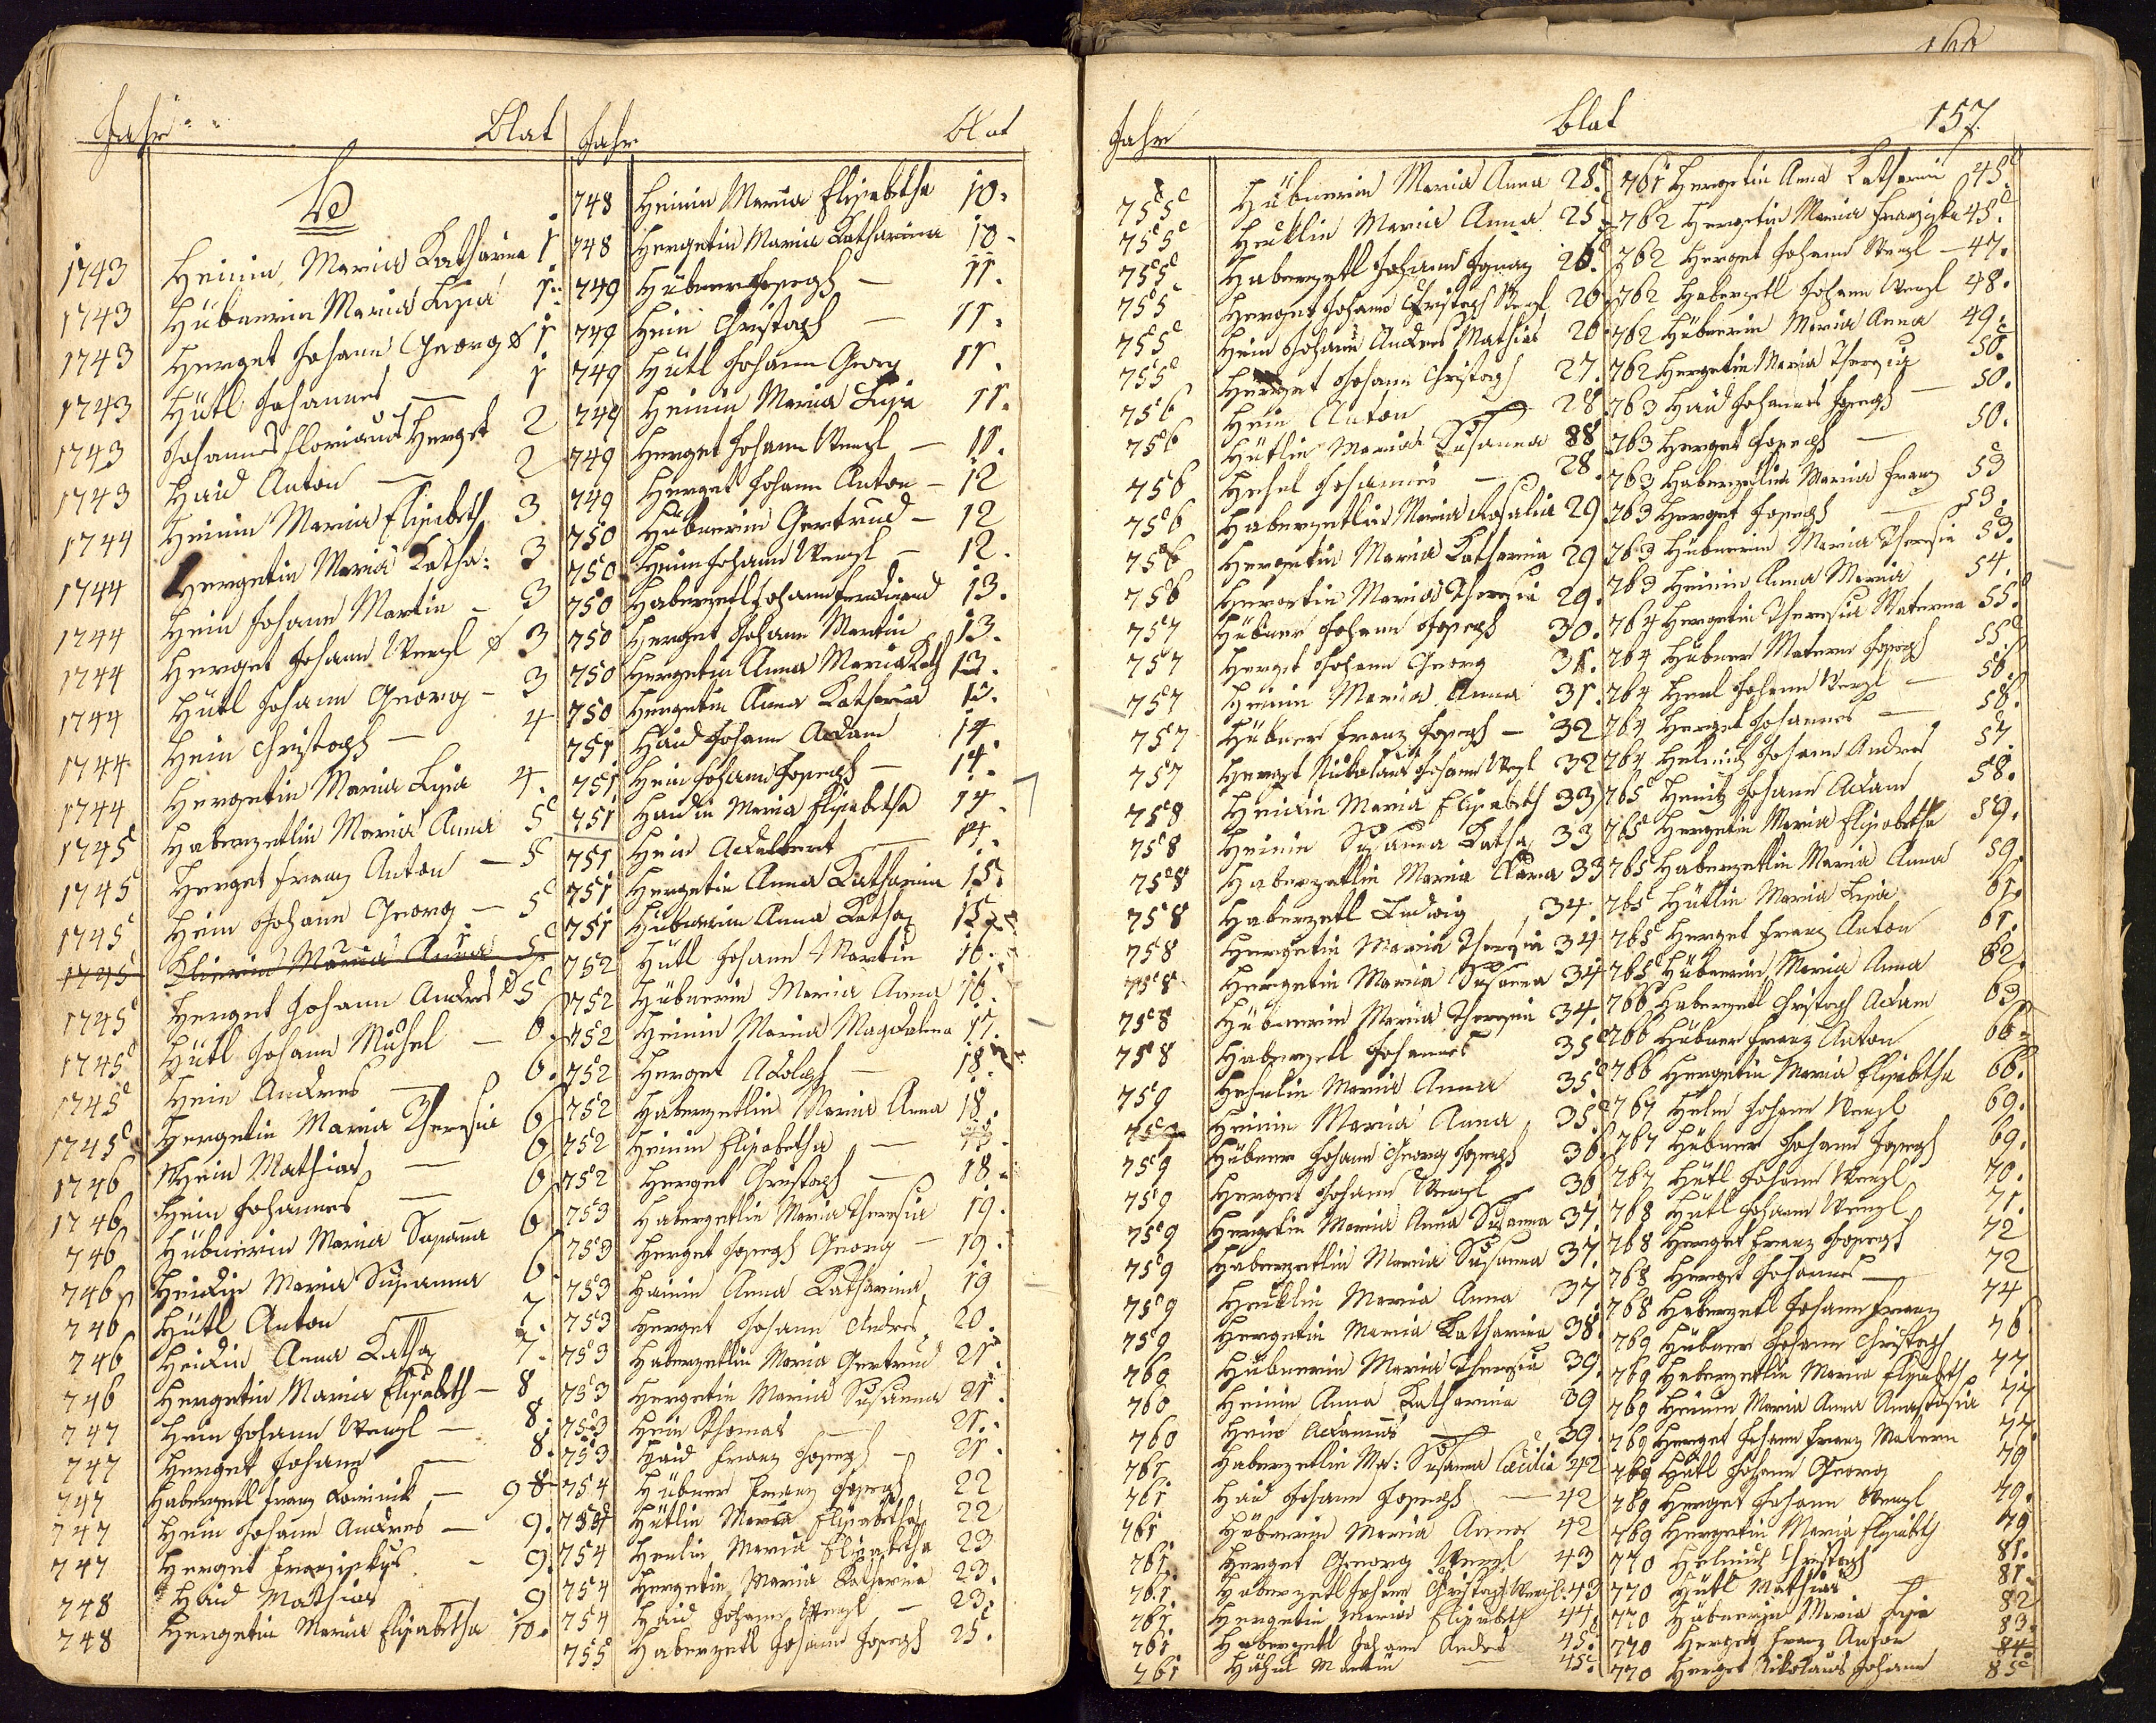 Jahr blat
H
1743 Heinin Maria Katharina 1
1743 Hübnerin Maria Lisia 1.
1743 Herget Johann Georg 1
1743 Hütl Johannes — 1
1743 Johannes Florianus Herget 2
1743 Haid Anton — 2
1744 Heinin Maria Elisabeth 3
1744 Hergetin Maria Katha: 3
1744 Hein Johann Martin — 3
1744 Herget Johann Wenzl 3
1744 Hütl Johann Georg — 3
1744 Hein Christoph — 4
1744 Hergetin Maria Lisia 4.
1745 Haberzetlin Maria Anna 5
1745 Herget Franz Anton — 5
1745 Hein Johann Georg — 5
1745 Maria Anna 5
1745 Herget Johann Andres 5
1745 Hütl Johann Michel — 6.
1745 Hein Andres — 6.
1745 Hergetin Maria Theresia 6
1746 Hein Mathias — 6
1746 Hein Johannes — 6
746 Hübnerin Maria Susanna 6
746 Heidin Maria Susanna 6
746 Hütl Anton — 7.
746 Heidin Anna Katha 7.
746 Hergetin Maria Elisabeth — 8
747 Hein Johann Wenzl — 8.
747 Herget Johann — 8.
747 Haberzetl Franz Dominik — 9 8
747 Hein Johann Andres — 9.
747 Herget Franziskus — 9.
748 Haid Mathias — 9
748 Hergetin Maria Elisabetha 10.
Jahr blat
748 Heinin Maria Elisabetha 10.
748 Hergetin Maria Katharina 10.
749 Hübner Joseph — 11.
749 Hein Christoph — 11.
749 Hütl Johann Georg 11.
749 Heinin Maria Lisia 11.
749 Herget Johann Wenzl — 11.
749 Herget Johann Anton — 12
750 Hübnerin Gertrud — 12
750 Hein Johann Wenzl — 12.
750 Haberzetl Johann Ferdinand 13.
750 Herget Johann Martin 13.
750 Hergetin Anna Maria Kath 13.
750 Hergetin Anna Katharina 13.
751 Haid Johann Adam 14.
751 Hein Johann Joseph — 14.
751 Haidin Maria Elisabetha 14.
751 Hein Adalbert — 14.
751 Hergetin Anna Katharina 15.
751 Hübnerin Anna Katha 15.
752 Hütl Johann Martin 16.
752 Hübnerin Maria Anna 16.
752 Heinin Maria Magdalena 17.
752 Herget Adolph — 18.
752 Haberzetlin Maria Anna 18.
752 Heinin Elisabetha — 18.
752 Herget Christoph — 18.
753 Haberzetlin Maria Theresia 19.
753 Herget Joseph Georg — 19.
753 Hainin Anna Katharina 19
753 Herget Johann Andres 20.
753 Haberzetlin Maria Gertrud 21.
753 Hergetin Maria Susanna 21.
753 Hein Thomas — 21.
753 Haid Franz Joseph — 21.
754 Hübner Franz Joseph 22
754 Hütlin Maria Elisabetha 22
754 Heulin Maria Elisabetha 23
754 Hergetin Maria Katharina 23.
754 Haid Johann Wenzl — 23.
755 Haberzetl Johann Joseph 25.
Jahr blat 157
755 Hübnerin Maria Anna 28.
755 Heuklin Maria Anna 25
755 Haberzetl Johann Ignaz 26.
755 Herget Johann Christoph Wenzl 26.
755 Hein Johann Andres Mathias 26
755 Herget Johann Christoph 27.
756 Hein Anton — 28
756 Hütlin Maria Susanna 88
756 Hehel Johannes — 28
756 Haberzetlin Maria Rosalia 29
756 Hergetin Maria Katharina 29
756 Hergetin Maria Theresia 29.
757 Hübner Johann Joseph 30.
757 Herget Johann Georg 31.
757 Heinin Maria Anna 31.
757 Hübner Franz Joseph — 32
757 Herget Nikolaus Johann Wenzl 32
758 Heidin Maria Elisabeth 33
758 Heinin Susanna Katha 33
758 Haberzetlin Maria Clara 33
758 Haberzetl Ludwig 34.
758 Hergetin Maria Theresia 34
758 Hergetin Maria Susanna 34
758 Hübnerin Maria Theresia 34.
758 Haberzetl Johannes 35
759 Hehelin Maria Anna 35
759 Heinin Maria Anna 35
759 Hübner Johann Georg Joseph 36
759 Herget Johann Wenzl 36
759 Hergetin Maria Anna Susanna 37.
759 Haberzetlin Maria Susanna 37.
759 Heuklin Maria Anna 37
759 Hergetin Maria Katharina 38.
760 Hübnerin Maria Theresia 39.
760 Heinin Anna Katharina 39
760 Hein Adamus — 39.
761 Haberzetlin Ma: Susanna Cæcilia 42
761 Haid Johann Joseph — 42
761 Hübnerin Maria Anna 42
761 Herget Georg Wenzl 43
761 Haberzetl Johann Christoph Wenzl. 43
761 Hergetin Maria Elisabeth 44.
761 Haberzetl Johann Andres 45.
761 Hähnl Martin — 45.
761 Hergetin Anna Katharin 45.
762 Hergetin Maria Franziska 45.
762 Herget Johann Wenzl — 47.
762 Haberzetl Johann Wenzl 48.
762 Hübnerin Maria Anna 49.
762 Hergetin Maria Theresia 50.
763 Haid Johannes Joseph — 50.
763 Herget Joseph — 50.
763 Haberzetlin Maria Franz 53
763 Herget Joseph — 53.
763 Hübnerin Maria Theresia 53.
763 Heinin Anna Maria 54.
764 Hergetin Theresia Materna 55.
764 Hübner Matern Joseph 55.
764 Johann Wenzl — 56.
764 Herget Johannes — 58.
764 Helmich Johann Andres 57
765 Johann Adam 58.
765 Hergetin Maria Elisabetha 59.
765 Haberzetlin Maria Anna 59
765 Hütlin Maria Lisia 61.
765 Herget Franz Anton 61.
765 Hübnerin Maria Anna 62.
766 Haberzetl Christoph Adam 63
766 Hübner Franz Anton 66.
766 Hergetin Maria Elisabetha 66.
767 Helm Johann Wenzl 69.
767 Hübner Johann Joseph 69.
767 Hütl Johann Wenzl 70.
768 Hütl Johann Wenzl 71.
768 Herget Franz Joseph 72
768 Herget Johannes — 72
768 Haberzetl Johann Franz 74
769 Hübner Johann Christoph 76
769 Haberzetlin Maria Elisabeth 77
769 Heinin Maria Anna Anastasia 77
769 Herget Johann Franz Matern 77.
769 Hütl Johann Georg 79
769 Herget Johann Wenzl 79.
769 Hergetin Maria Elisabeth 79
770 Helmich Christoph 81.
770 Hütl Mathias — 81.
770 Hübnerin Maria Lisia 82
770 Herget Franz Anton 83.
770 Herget Nikolaus Johann 85